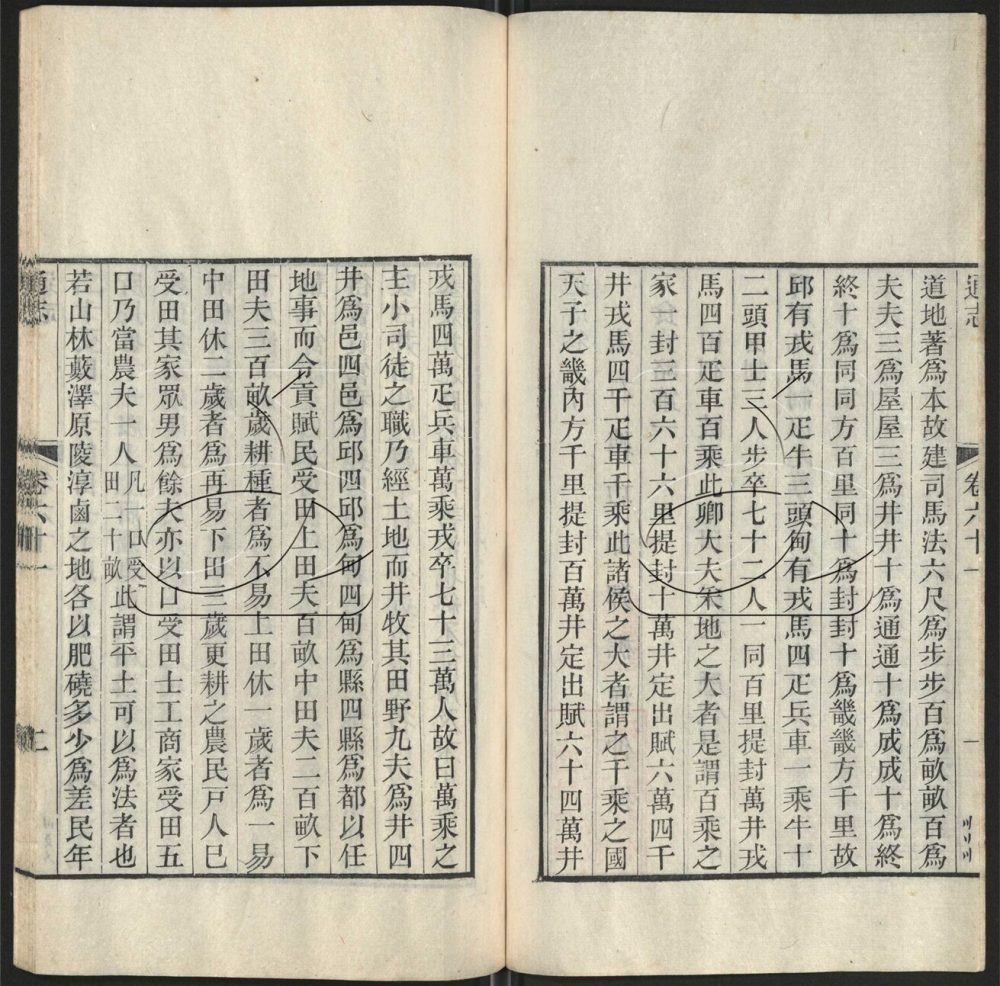 通志
卷六十一
一
道地著爲本故建司馬法六尺爲步步百爲畝畝百爲
夫夫三爲屋屋三爲井井十爲通通十爲成成十爲終
終十爲同同方百里同十爲封封十爲畿畿方千里故
邱有戎馬一疋牛三頭甸有戎馬四疋兵車一乘牛十
二頭甲士三人步卒七十二人一同百里提封萬井戎
馬四百疋車百乘此卿大夫采地之大者是謂百乘之
家一封三百六十六里提封十萬井定出賦六萬四千
井戎馬四千疋車千乘此諸侯之大者謂之千乘之國
天子之畿內方千里提封百萬井定出賦六十四萬井
戎馬四萬疋兵車萬乘戎卒七十三萬人故曰萬乘之
主小司徒之職乃經土地而井牧其田野九夫爲井四
井爲邑四邑爲邱四邱爲甸四甸爲縣四縣爲都以任
地事而令貢賦民受田上田夫百畝中田夫二百畝下
田夫三百畝歲耕種者爲不易上田休一歲者爲一易
中田休二歲者爲再易下田三歲更耕之農民戸人巳
受田其家眾男爲餘夫亦以口受田士工商家受田五
口乃當農夫一人凡一口受田二十畝此謂平土可以爲法者也
若山林藪澤原陵淳鹵之地各以肥磽多少爲差民年
通志
卷六十一
二